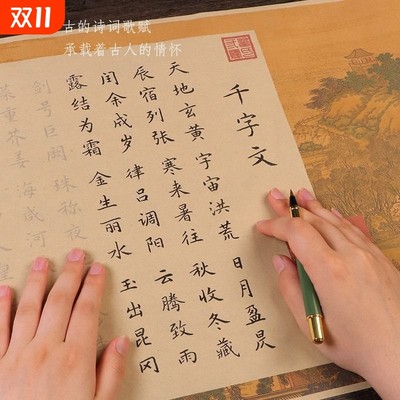 双11
古的诗词歌赋
承载着古人的情怀
千字文
天地玄黄 宇宙洪荒 日月盈昃
辰宿列张 寒来暑往 秋收冬藏
闰余成岁 律吕调阳 云腾致雨
露结为霜 金生丽水 玉出昆冈
剑号巨阙 珠称夜
菜重芥姜 海咸河